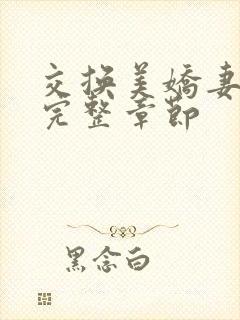 交换美娇妻
完整章节
黑念白